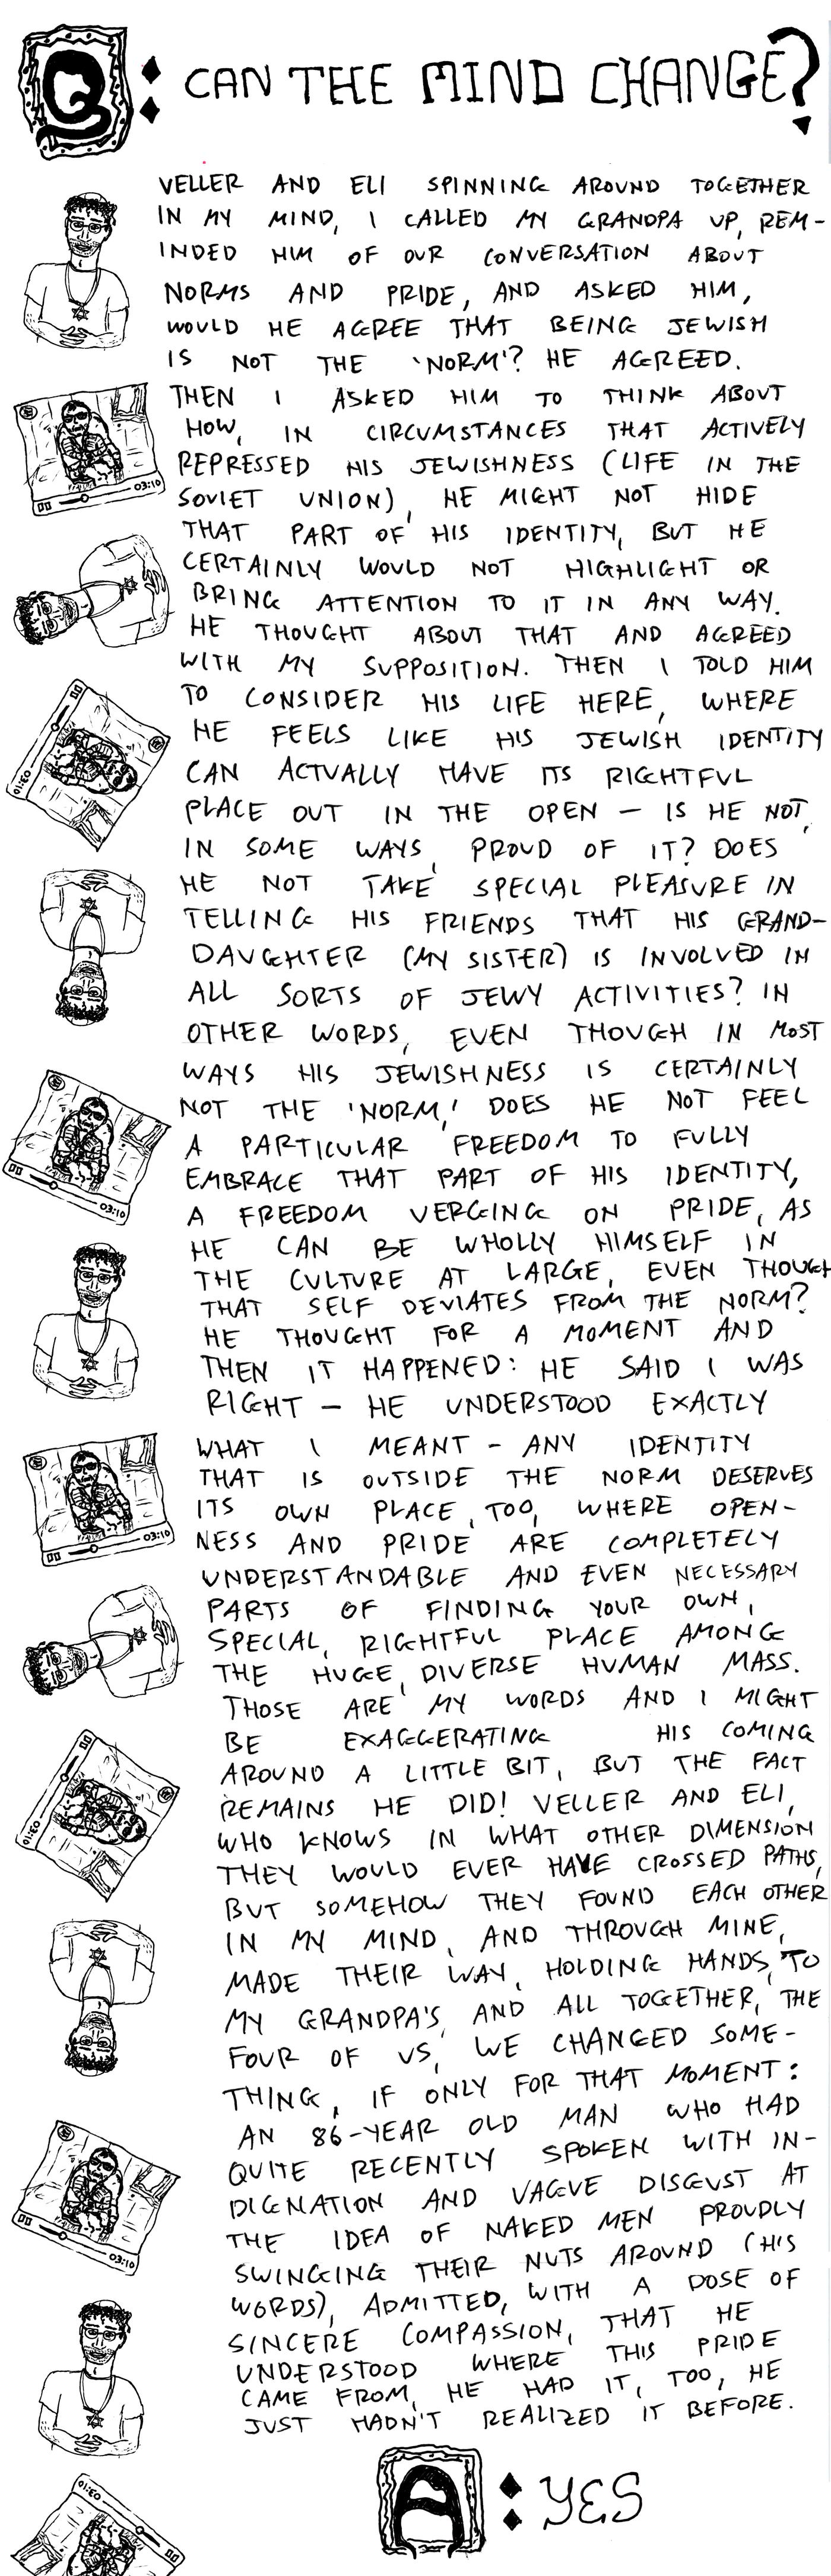 Q: CAN THE MIND CHANGE?
VELLER AND ELI SPINNING AROUND TOGETHER
IN MY MIND, I CALLED MY GRANDPA UP, REM-
INDED HIM OF OUR CONVERSATION ABOUT
NORMS AND PRIDE, AND ASKED HIM,
WOULD HE AGREE THAT BEING JEWISH
IS NOT THE 'NORM'? HE AGREED.
THEN I ASKED HIM TO THINK ABOUT
HOW, IN CIRCUMSTANCES THAT ACTIVELY
REPRESSED HIS JEWISHNESS (LIFE IN THE
SOVIET UNION), HE MIGHT NOT HIDE
THAT PART OF HIS IDENTITY, BUT HE
CERTAINLY WOULD NOT HIGHLIGHT OR
BRING ATTENTION TO IT IN ANY WAY.
HE THOUGHT ABOUT THAT AND AGREED
WITH MY SUPPOSITION. THEN I TOLD HIM
TO CONSIDER HIS LIFE HERE, WHERE
HE FEELS LIKE HIS JEWISH IDENTITY
CAN ACTUALLY HAVE ITS RIGHTFUL
PLACE OUT IN THE OPEN — IS HE NOT,
IN SOME WAYS, PROUD OF IT? DOES
HE NOT TAKE SPECIAL PLEASURE IN
TELLING HIS FRIENDS THAT HIS GRAND-
DAUGHTER (MY SISTER) IS INVOLVED IN
ALL SORTS OF JEWY ACTIVITIES? IN
OTHER WORDS, EVEN THOUGH IN MOST
WAYS HIS JEWISHNESS IS CERTAINLY
NOT THE 'NORM,' DOES HE NOT FEEL
A PARTICULAR FREEDOM TO FULLY
EMBRACE THAT PART OF HIS IDENTITY,
A FREEDOM VERGING ON PRIDE, AS
HE CAN BE WHOLLY HIMSELF IN
THE CULTURE AT LARGE, EVEN THOUGH
THAT SELF DEVIATES FROM THE NORM?
HE THOUGHT FOR A MOMENT AND
THEN IT HAPPENED: HE SAID I WAS
RIGHT — HE UNDERSTOOD EXACTLY
WHAT I MEANT - ANY IDENTITY
THAT IS OUTSIDE THE NORM DESERVES
ITS OWN PLACE, TOO, WHERE OPEN-
NESS AND PRIDE ARE COMPLETELY
UNDERSTANDABLE AND EVEN NECESSARY
PARTS OF FINDING YOUR OWN,
SPECIAL, RIGHTFUL PLACE AMONG
THE HUGE, DIVERSE HUMAN MASS.
THOSE ARE MY WORDS AND I MIGHT
BE EXAGGERATING HIS COMING
AROUND A LITTLE BIT, BUT THE FACT
REMAINS HE DID! VELLER AND ELI,
WHO KNOWS IN WHAT OTHER DIMENSION
THEY WOULD EVER HAVE CROSSED PATHS,
BUT SOMEHOW THEY FOUND EACH OTHER
IN MY MIND, AND THROUGH MINE,
MADE THEIR WAY, HOLDING HANDS, TO
MY GRANDPA'S, AND ALL TOGETHER, THE
FOUR OF US, WE CHANGED SOME-
THING, IF ONLY FOR THAT MOMENT:
AN 86-YEAR OLD MAN WHO HAD
QUITE RECENTLY SPOKEN WITH IN-
DIGNATION AND VAGUE DISGUST AT
THE IDEA OF NAKED MEN PROUDLY
SWINGING THEIR NUTS AROUND (HIS
WORDS), ADMITTED, WITH A DOSE OF
SINCERE COMPASSION, THAT HE
UNDERSTOOD WHERE THIS PRIDE
CAME FROM, HE HAD IT, TOO, HE
JUST HADN'T REALIZED IT BEFORE.
A: YES
03:10
03:10
03:10
03:10
03:10
03:10
03:10